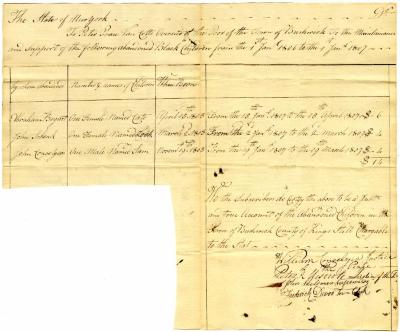 The State of New York
To Peter Van Cott Overseer of the Poor of the Town of Bushwick To the Maintenance
and Support of the following Abandoned Black Children from the 1st Jany 1806 to the 1st Jany 1807
by whom Abandoned Number & names of Children When Born
Abraham One Female Named Cate April 10 1803 From the 10th Jany 1807 to the 10th April 1807 $ 6
John One Female Named March 2 1803 From the 2 Jany 1807 to the 2 March 1807 $ 4
John One Male Named Sam Novem 19 1803 From the 19th Jany 1807 to the 19th March 1807 $ 4
$ 14
We the Subscribers do Certify the above to be a Just
and true Account of the Abandoned Children in the
Town of Bushwick County of Kings Still Chargable
to the State
William Justice
of the Peace
Supervisor
Town Clerk